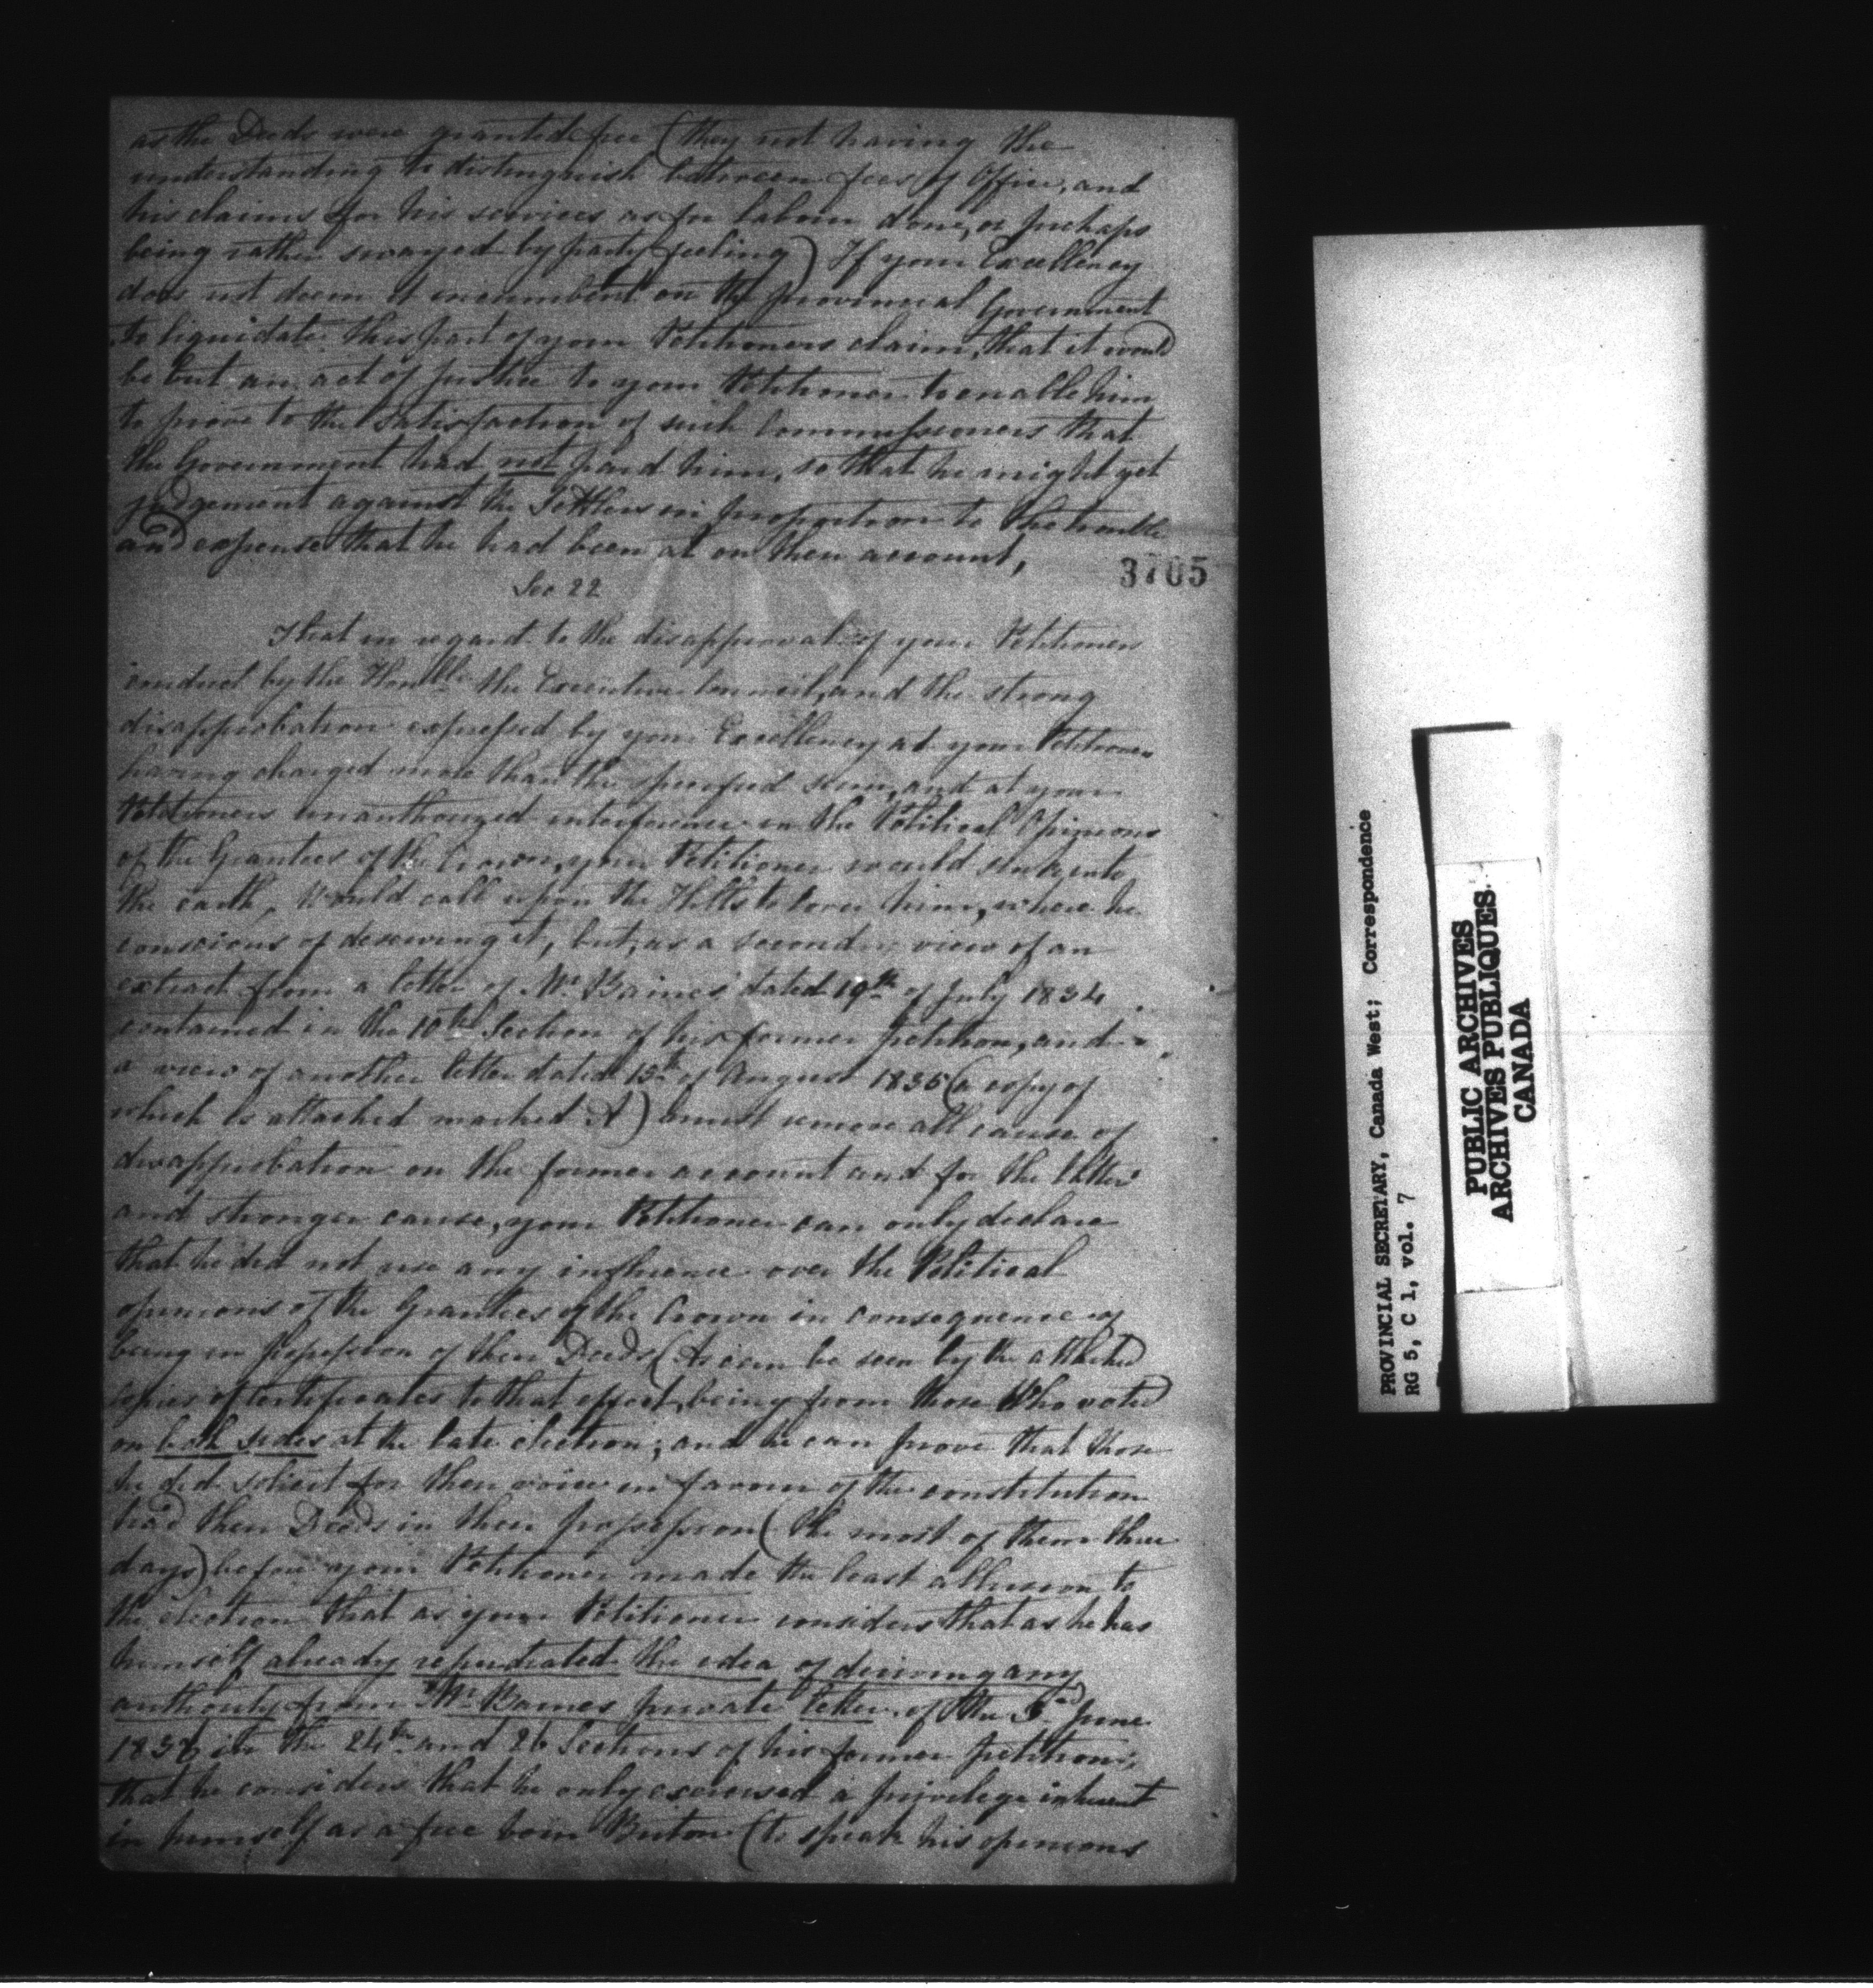 as the Deeds were granted free (they not having the
understanding to distinguish between fees of Office, and
his claims for his services as for labour done, or perhaps
being rather swayed by party feeling) If your Excellency
does not deem it incumbent on the provincial Government
to liquidate this part of your Petitioners claim, that it would
be but an act of justice to your Petitioner to enable him
to prove to the satisfaction of such Commissioners that
the Government had not paid him, so that he might get
judgement against the Settlers in proportion to the trouble
and expense that he had been at on their account,
3705
Sec 22
That in regard to the disapproval of your Petitioners
conduct by the Honble the Executive Council, and the strong
disapprobation expressed by your Excellency at your Petitioners
having charged more than the specified sum, and at your
Petitioners unauthorized interference in the Political Opinions
of the Grantees of the Crown, your Petitioner would sink into
the earth, would call upon the Hills to cover him, where he
conscious of deserving it, but, as a second view of an
extract from a letter of Mr Baines dated 19th of July 1834
contained in the 10th Section of his former petition, and
a view of another letter dated 15th of August 1835 (a copy of
which is attached marked A) must remove all cause of
disapprobation on the former account and for the latter
and stronger cause, your Petitioner can only declare
that he did not use any influence over the Political
opinions of the Grantees of the Crown in consequence of
being in possession of their Deeds (As can be seen by the attached
copies of Certificates to that effect, being from those Who voted
on both sides at the late election; and he can prove that those
he did solicit for their voice in favour of the constitution
had their Deeds in their possession (the most of them three
days) before your Petitioner made the least allusion to
the election that as your Petitioner considers that as he has
himself already repudiated the idea of deriving any
authority from Mr Baines private letter of the 3rd June
in the 24th and 26 Sections of his former petition;
that he considers that he only exercised a privilege inherent
in himself as a free born Briton (to speak his opinions
PROVINCIAL SECRETARY, Canada West; Correspondence
RG 5, C 1, vol. 7
PUBLIC ARCHIVES
ARCHIVES PUBLIQUES
CANADA